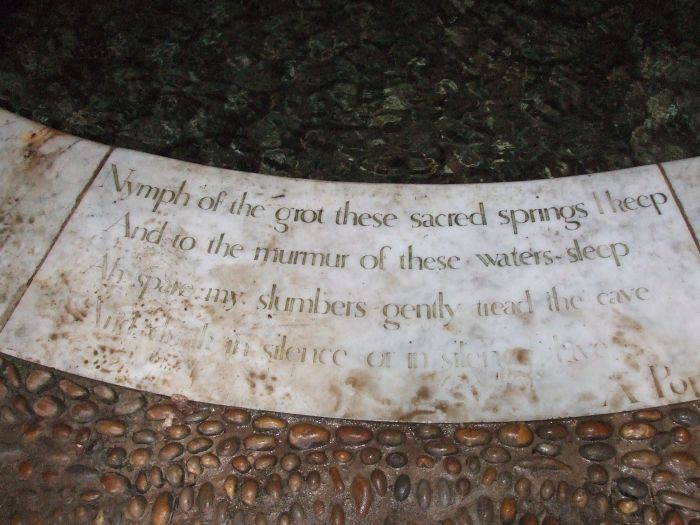 Nymph of the grot these sacred springs I keep
And to the murmur of these waters sleep
Ah spare my slumbers gently tread the cave
And drink in silence or in silence lave
A Pop